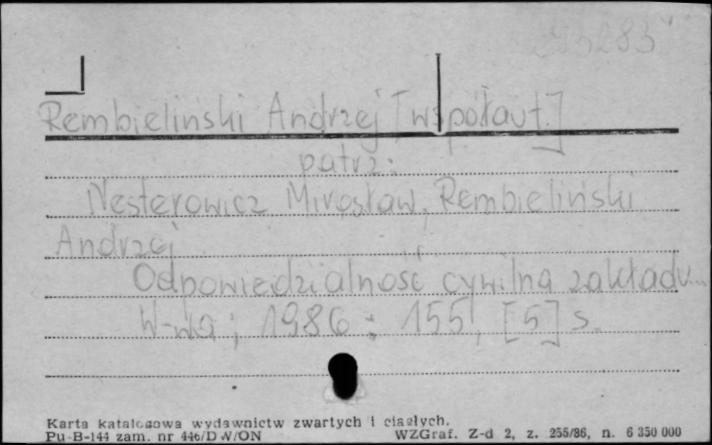 Rembieliński Andrzej [współaut.]
patrz:
Nesterowicz Mirosław, Rembieliński
Andrzej
Odpowiedzialność cywilna zakładu...
W-wa; 1986: 155, [5] s.
Karta katalogowa wydawnictw zwartych i ciągłych.
Pu-B-144 zam. nr 446/D W/ON WZGraf. Z-d 2, z. 255/86, n. 6 350 000